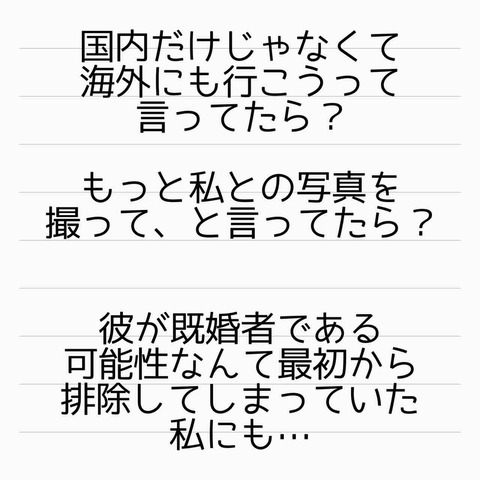 国内だけじゃなくて
海外にも行こうって
言ってたら？
もっと私との写真を
撮って、と言ってたら？
彼が既婚者である
可能性なんて最初から
排除してしまっていた
私にも…